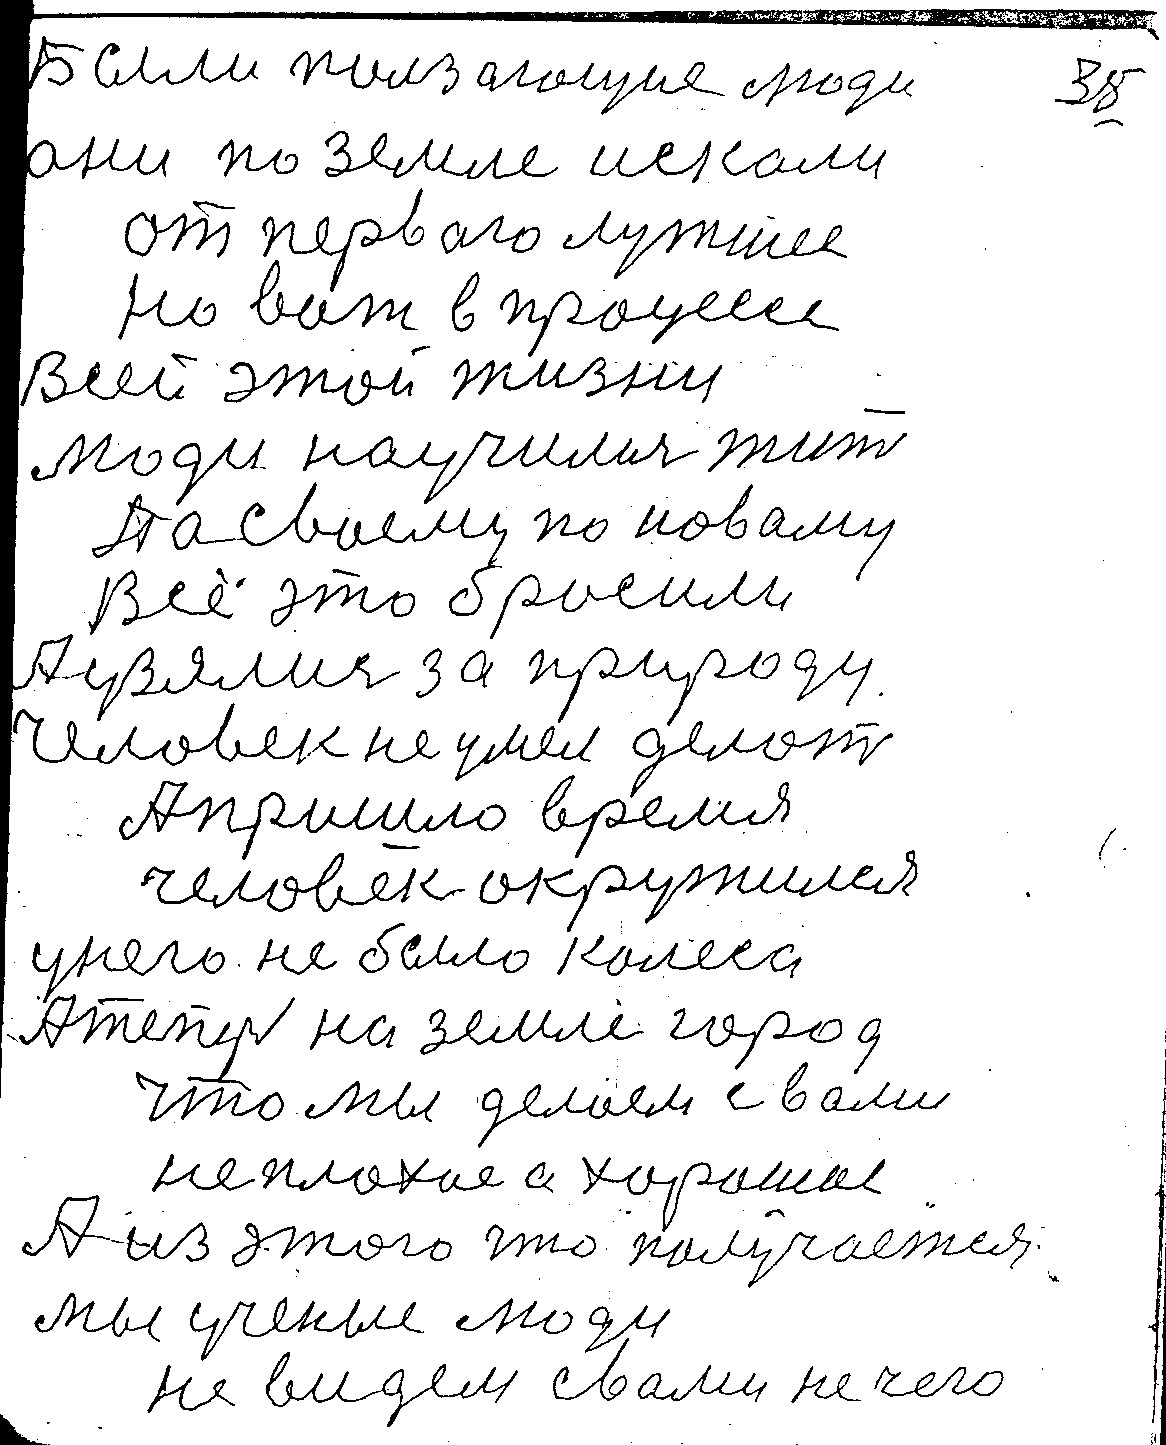 Были ползающие люди 38
они по земле искали
от перваго лутшее
но вот в процессе
Всей этой жизни
люди научился жит
Па своему по новаму
Всё это бросили
А увялися за природу.
Человек не умел делат
А пришло время
человек окружился
унего не было колеса
А тепер на земле город
что мы делаем с вами
не плохое а хорошое
А из этого что получается
мы ученые люди
не видем свами не чего